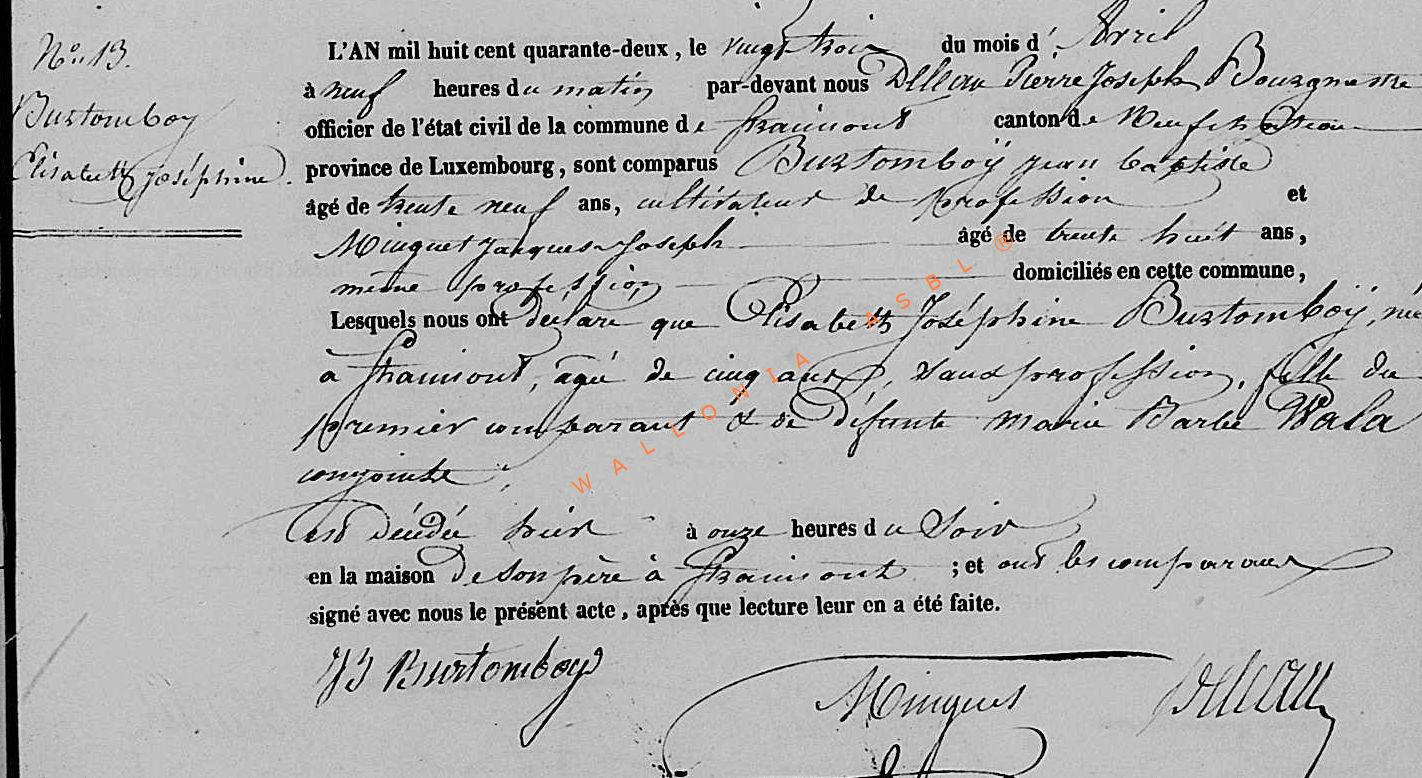 No. 13.
Burtomboy
Elisabeth Joséphine.
L'AN mil huit cent quarante-deux, le vingt trois du mois d' Avril
à neuf heures du matin par-devant nous Delleau Pierre Joseph Bourgmestre
officier de l'état civil de la commune de Straimont canton de Neufchateau
province de Luxembourg, sont comparus Burtomboÿ jean baptiste
âgé de trente neuf ans, cultivateur de profession et
Minguet Jacques Joseph âgé de trente huit ans,
même profession domiciliés en cette commune,
Lesquels nous ont declaré que Elisabeth Joséphine Burtomboÿ, née
à Straimont, agée de cinq ans, sans profession, fille du
premier comparant & de défunte Marie Barbe Wala
conjointe,
est décédée hier à onze heures du Soir
en la maison de Son père à Straimont ; et ont les comparants
signé avec nous le présent acte, après que lecture leur en a été faite.
JB Burtomboy
Minguet
Delleau
WALLONIA ASBL ®